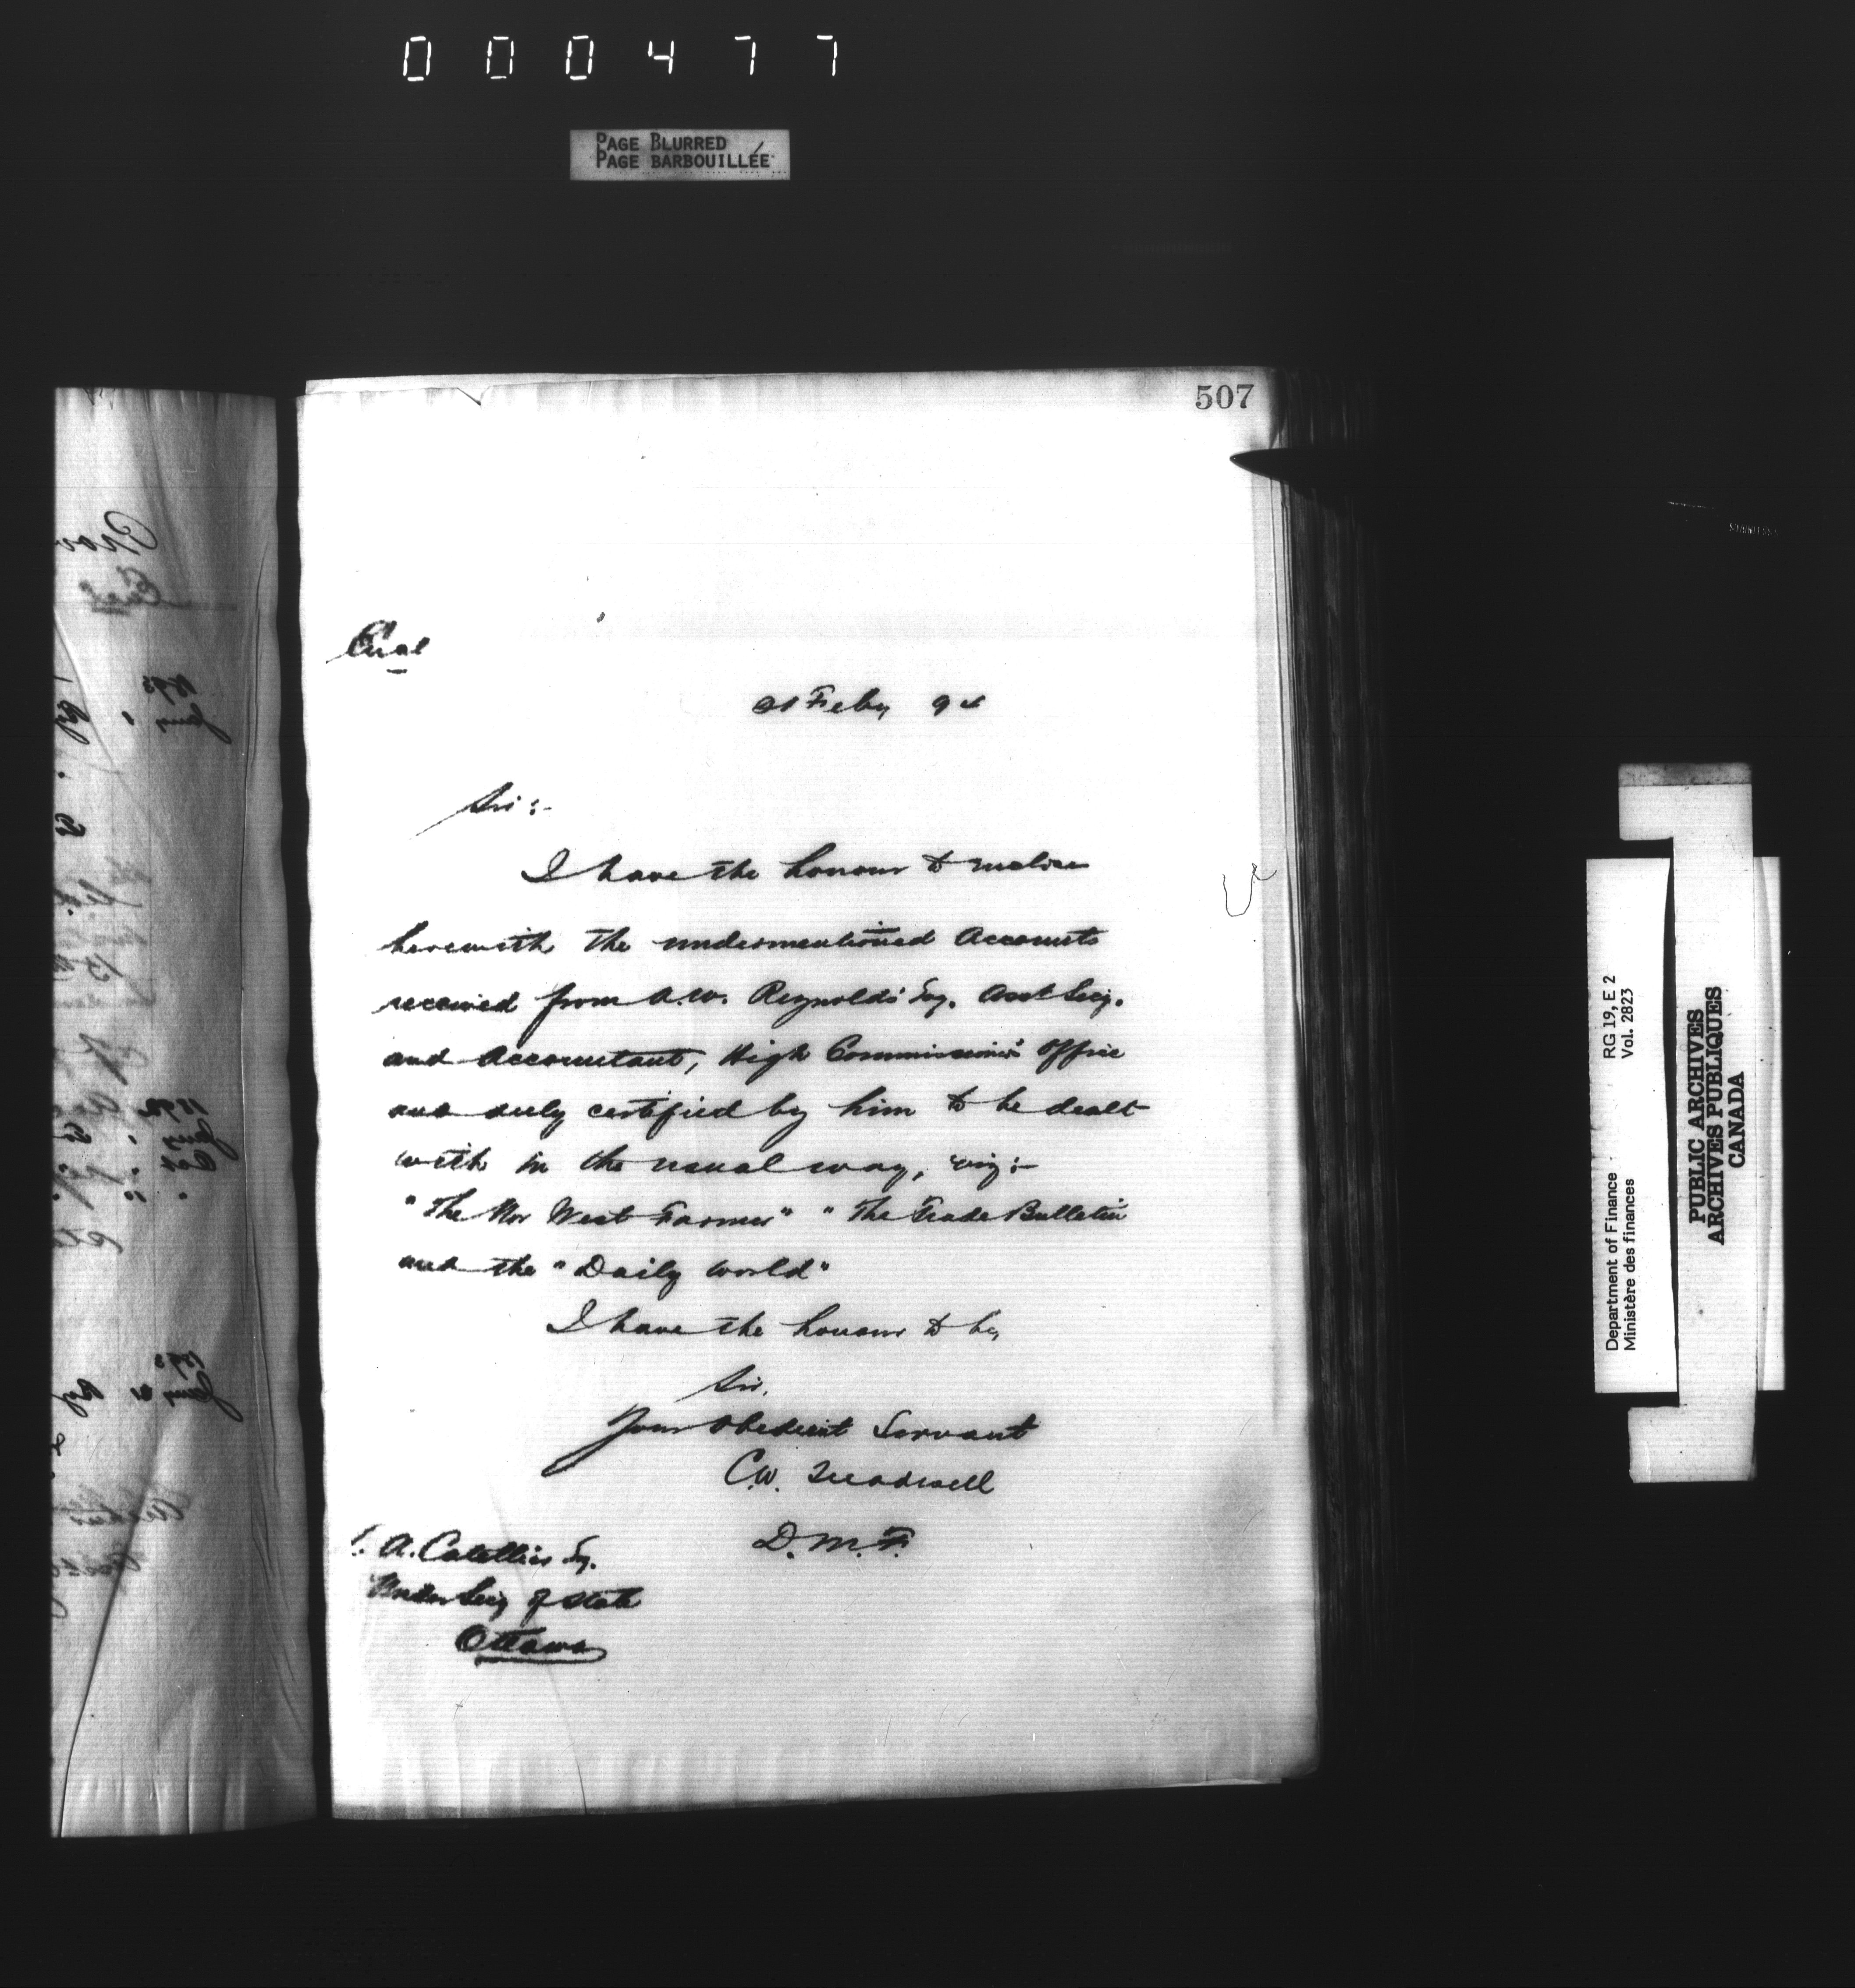 000477
PAGE BLURRED
PAGE BARBOUILLÉE
507
Encl
21 Feby 94
Sir:-
I have the honour to enclose
herewith the undermentioned Accounts
received from A.W. Reynolds Esq. Asst Secy.
and Accountant, High Commissioner's Office
and duly certified by him to be dealt
with in the usual way, viz:-
"The Nor West Farmer" "The Trade Bulletin
and the "Daily World"
I have the honour to be,
Sir,
Your obedient Servant
C.W. Treadwell
D.M.F.
A. Catellier Esq.
Under Secy of State
Ottawa
Department of Finance RG 19, E 2
Ministère des finances Vol. 2823
PUBLIC ARCHIVES
ARCHIVES PUBLIQUES
CANADA
STAINLESS